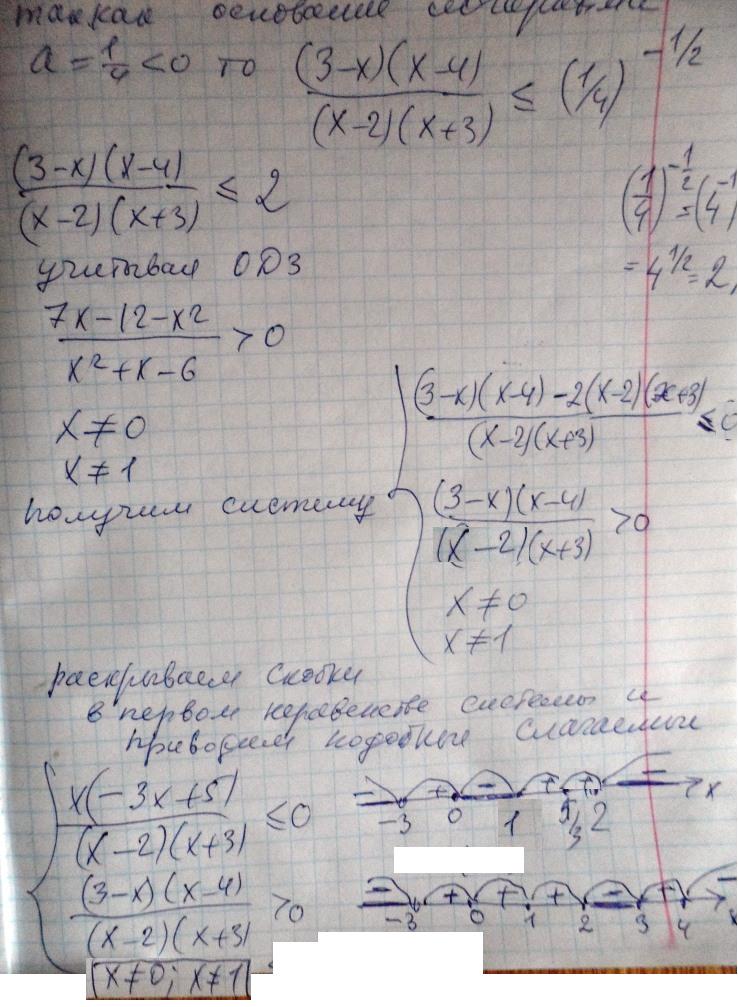 так как основание логарифма
a = 1/4 < 0 то (3-x)(x-4)/(x-2)(x+3) ≤ (1/4)^-1/2
(3-x)(x-4)/(x-2)(x+3) ≤ 2
(1/4)^-1/2 = (4^-1
= 4^1/2 = 2,
учитывая ОДЗ
7x-12-x²/x²+x-6 > 0
x ≠ 0
x ≠ 1
получим систему
(3-x)(x-4)-2(x-2)(x+3)/(x-2)(x+3) ≤ 0
(3-x)(x-4)/(x-2)(x+3) > 0
x ≠ 0
x ≠ 1
раскрываем скобки
в первом неравенстве системы и
приводим подобные слагаемые
x(-3x+5)/(x-2)(x+3) ≤ 0
- + - + + - x
-3 0 1 5/3 2
(3-x)(x-4)/(x-2)(x+3) > 0
- + + + - + -
-3 0 1 2 3 4 x
x ≠ 0; x ≠ 1